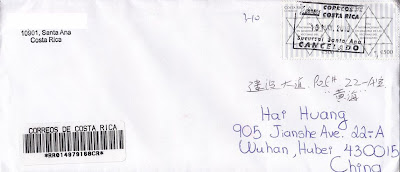 10901, Santa Ana
Costa Rica
CORREOS DE
COSTA RICA
Sucursal Santa Ana
CANCELADO
₡500
建设大道 905# 22-A室
"黄海"
Hai Huang
905 Jianshe Ave. 22-A
Wuhan, Hubei 430015
China
CORREOS DE COSTA RICA
*RR014979168CR*